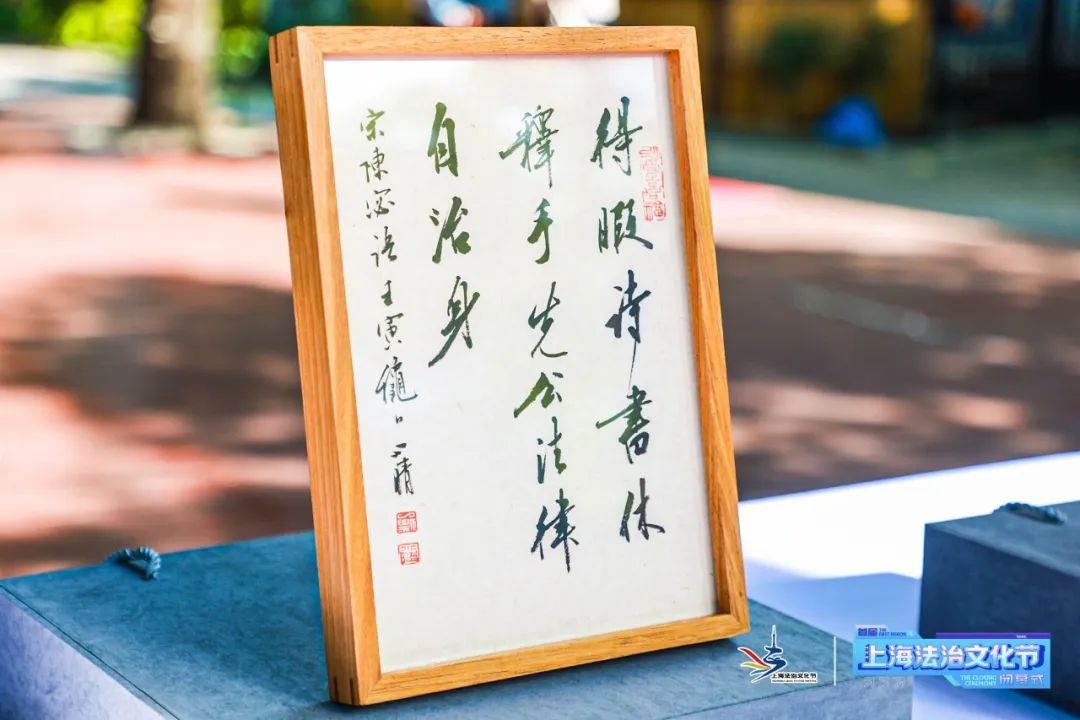 得暇詩書休
釋手先公法律
自治身
宋陳宓語壬寅穐日一晴
上海法治文化节
首届
上海法治文化节
THE CLOSING CEREMONY
闭幕式